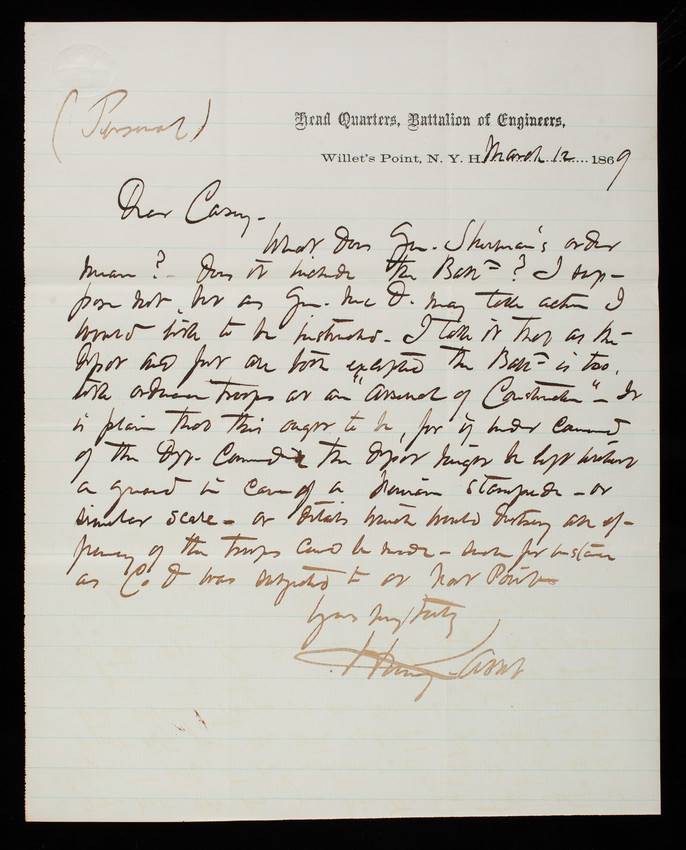 (Personal)
Head Quarters, Battalion of Engineers,
Willet's Point, N. Y. H. March 12 1869
Dear Casey -
What does Gen. Sherman's order
mean? - Does it include the Batt=n? I sup-
pose not, but as Gen. Mc D. may take action I
would wish to be instructed - I take it that as the
depot and fort are both excepted the Batt=n is too,
like ordnance troops at an "Arsenal of Construction" - It
is plain that this ought to be, for if under command
of the Dept. Commdr the depot might be left without
a guard in case of a Fenian stampede - or
similar scare - or details which would destroy all ef-
ficiency of the troops could be made - such for instance
as Co D was subjected to at West Point -
Yours very truly
Henry L Abbot